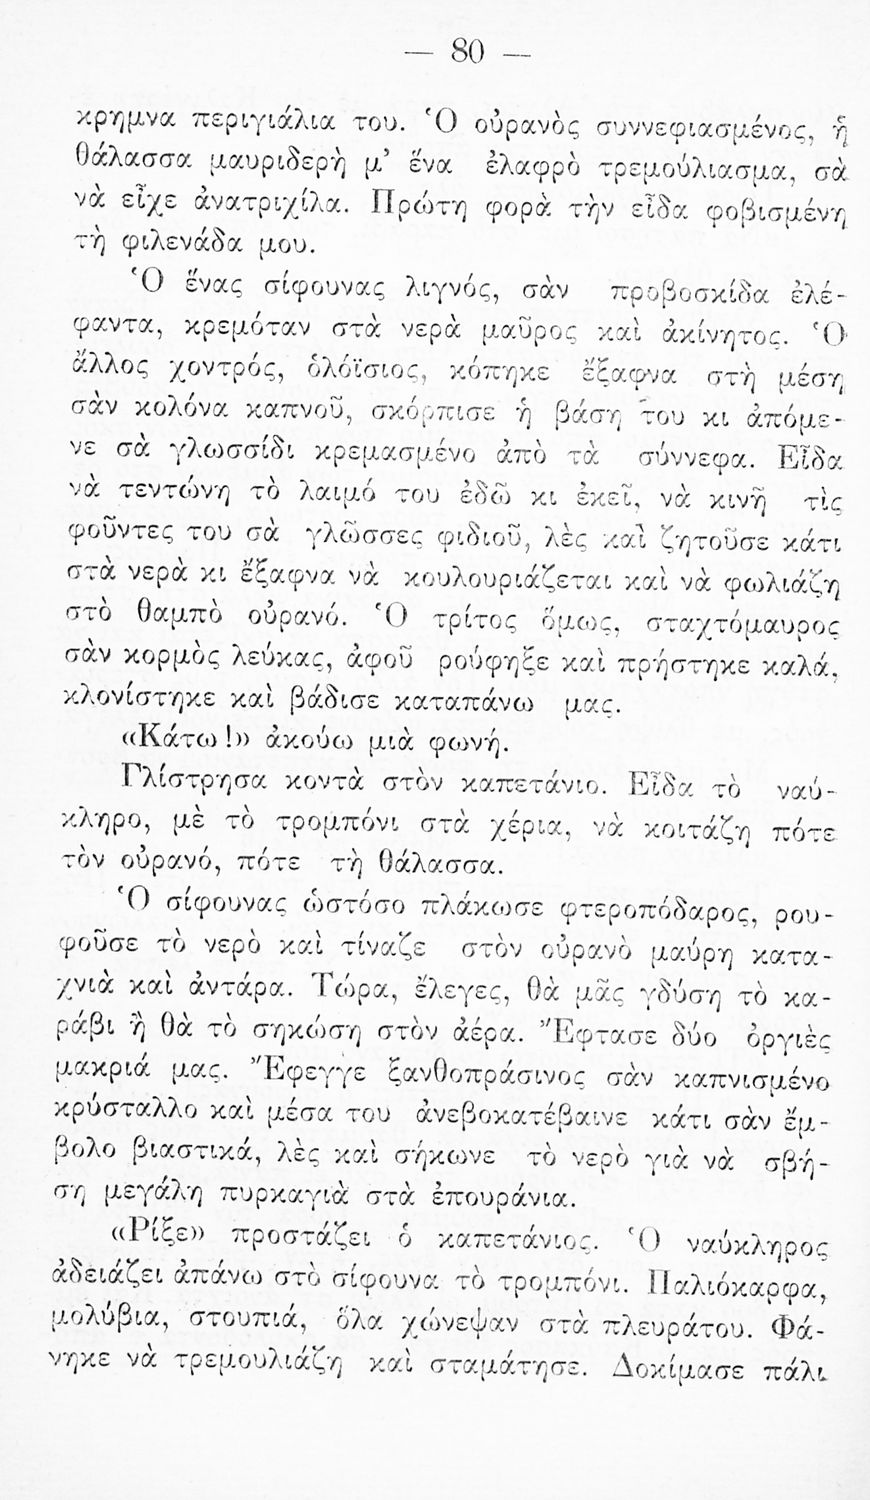 — 80 —
κρημνα περιγιάλια του. Ὁ οὐρανὸς συννεφιασμένος, ἡ
θάλασσα μαυριδερὴ μ’ ἕνα ἐλαφρὸ τρεμούλιασμα, σὰ
νὰ εἶχε ἀνατριχίλα. Πρώτη φορὰ τὴν εἶδα φοβισμένη
τὴ φιλενάδα μου.
Ὁ ἕνας σίφουνας λιγνός, σὰν προβοσκίδα ἐλέ-
φαντα, κρεμόταν στὰ νερὰ μαῦρος καὶ ἀκίνητος. Ὁ
ἄλλος χοντρός, ὁλόϊσιος, κόπηκε ἔξαφνα στὴ μέση
σὰν κολόνα καπνοῦ, σκόρπισε ἡ βάση του κι ἀπόμε-
νε σὰ γλωσσίδι κρεμασμένο ἀπὸ τὰ σύννεφα. Εἶδα
νὰ τεντώνη τὸ λαιμό του ἐδῶ κι ἐκεῖ, νὰ κινῆ τὶς
φοῦντες του σὰ γλῶσσες φιδιοῦ, λὲς καὶ ζητοῦσε κάτι
στὰ νερὰ κι ἔξαφνα νὰ κουλουριάζεται καὶ νὰ φωλιάζη
στὸ θαμπὸ οὐρανό. Ὁ τρίτος ὅμως, σταχτόμαυρος
σὰν κορμὸς λεύκας, ἀφοῦ ρούφηξε καὶ πρήστηκε καλά,
κλονίστηκε καὶ βάδισε καταπάνω μας.
«Κάτω!» ἀκούω μιὰ φωνή.
Γλίστρησα κοντὰ στὸν καπετάνιο. Εἶδα τὸ ναύ-
κληρο, μὲ τὸ τρομπόνι στὰ χέρια, νὰ κοιτάζη πότε
τὸν οὐρανό, πότε τὴ θάλασσα.
Ὁ σίφουνας ὡστόσο πλάκωσε φτεροπόδαρος, ρου-
φοῦσε τὸ νερὸ καὶ τίναζε στὸν οὐρανὸ μαύρη κατα-
χνιὰ καὶ ἀντάρα. Τώρα, ἔλεγες, θὰ μᾶς γδύση τὸ κα-
ράβι ἢ θὰ τὸ σηκώση στὸν ἀέρα. Ἔφτασε δύο ὀργιὲς
μακριά μας. Ἔφεγγε ξανθοπράσινος σὰν καπνισμένο
κρύσταλλο καὶ μέσα του ἀνεβοκατέβαινε κάτι σὰν ἔμ-
βολο βιαστικά, λὲς καὶ σήκωνε τὸ νερὸ γιὰ νὰ σβή-
ση μεγάλη πυρκαγιὰ στὰ ἐπουράνια.
«Ρίξε» προστάζει ὁ καπετάνιος. Ὁ ναύκληρος
ἀδειάζει ἀπάνω στὸ σίφουνα τὸ τρομπόνι. Παλιόκαρφα,
μολύβια, στουπιά, ὅλα χώνεψαν στὰ πλευράτου. Φά-
νηκε νὰ τρεμουλιάζη καὶ σταμάτησε. Δοκίμασε πάλι